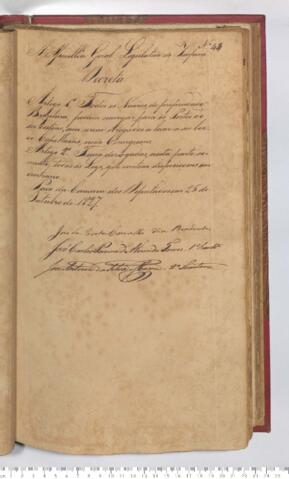 N.º 44
A Assemblea Geral Legislativa do Imperio
Decreta
Artigo 1.º Todos os Navios de propriedade
Brasileira podem navegar para os Portos
sem serem obrigados a levar a seu bor-
do Capellães, nem Cirurgioens.
Artigo 2.º Ficão derogadas, nesta parte so-
mente, todas as Leys, que contem disposicoens em
contrario.
Paço da Camara dos Deputados em 25 de
Outubro de 1827.
José da Costa Carvalho Presidente
José Carlos Pereira de Almeida Torres 1.º Secret.
José Antonio da Silva 2.º Secretario